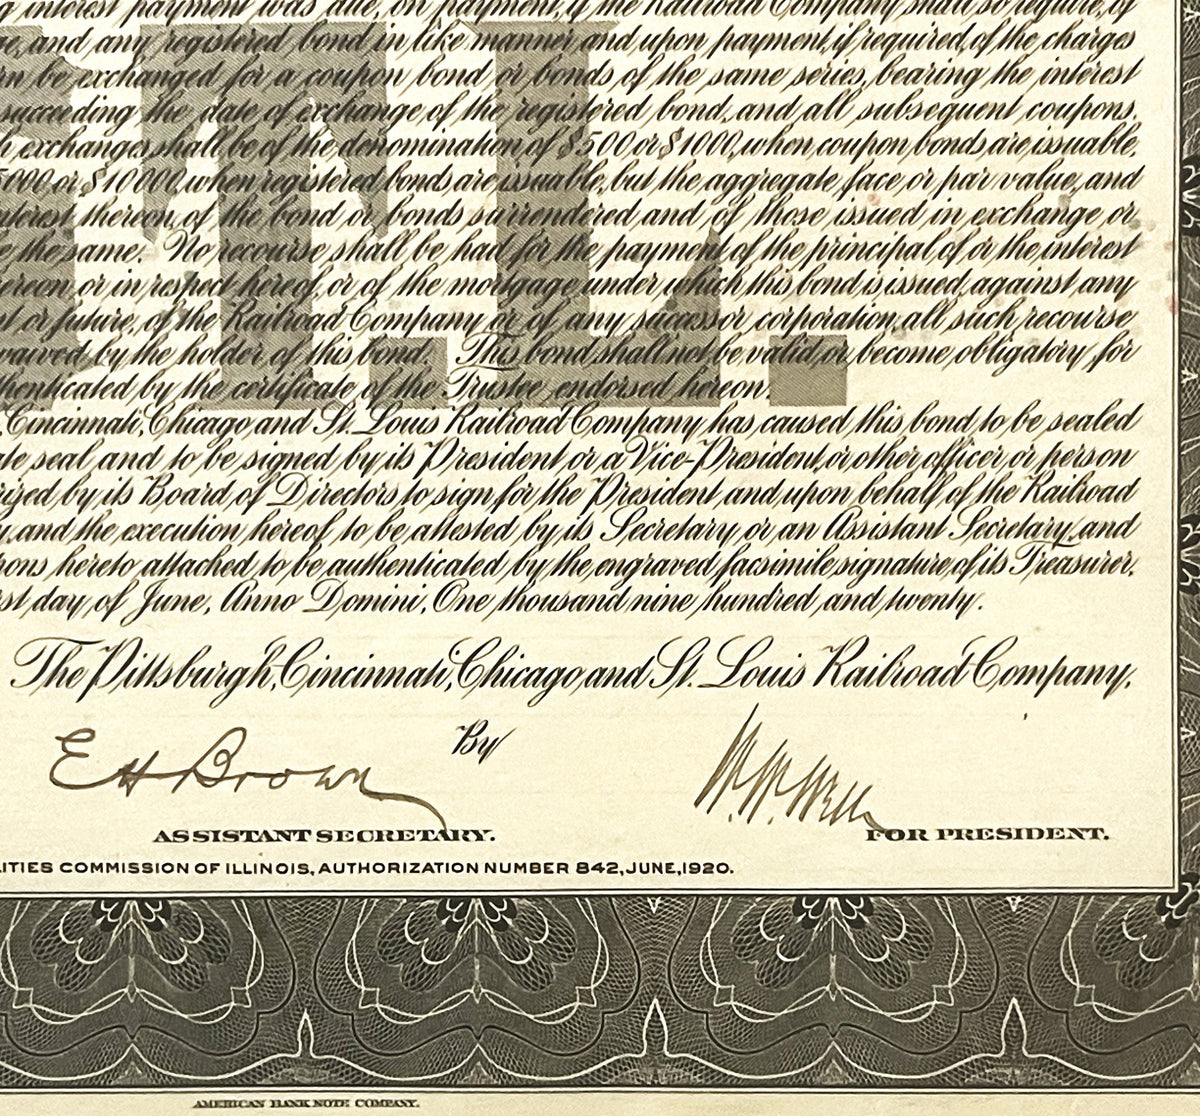 interest payment was due, on payment, if the Railroad Company shall so require, of
and any registered bond in like manner and upon payment, if required, of the charges
be exchanged for a coupon bond or bonds of the same series, bearing the interest
succeeding the date of exchange of the registered bond, and all subsequent coupons.
exchanges shall be of the denomination of $500 or $1000, when coupon bonds are issuable,
or $10000, when registered bonds are issuable, but the aggregate face or par value, and
interest thereon, of the bond or bonds surrendered and of those issued in exchange or
the same. No recourse shall be had for the payment of the principal of or the interest
or in respect hereof, or of the mortgage under which this bond is issued, against any
or future, of the Railroad Company or of any successor corporation, all such recourse
waived by the holder of this bond. This bond shall not be valid, or become obligatory, for
authenticated by the certificate of the Trustee endorsed hereon.
Cincinnati, Chicago and St. Louis Railroad Company has caused this bond to be sealed
seal and to be signed by its President or a Vice-President, or other officer or person
by its Board of Directors to sign for the President and upon behalf of the Railroad
and the execution hereof to be attested by its Secretary or an Assistant Secretary, and
hereto attached to be authenticated by the engraved facsimile signature of its Treasurer.
day of June, Anno Domini, One thousand nine hundred and twenty.
The Pittsburgh, Cincinnati, Chicago and St. Louis Railroad Company,
By
E H Brown
ASSISTANT SECRETARY.
FOR PRESIDENT.
COMMISSION OF ILLINOIS, AUTHORIZATION NUMBER 842, JUNE, 1920.
AMERICAN BANK NOTE COMPANY.